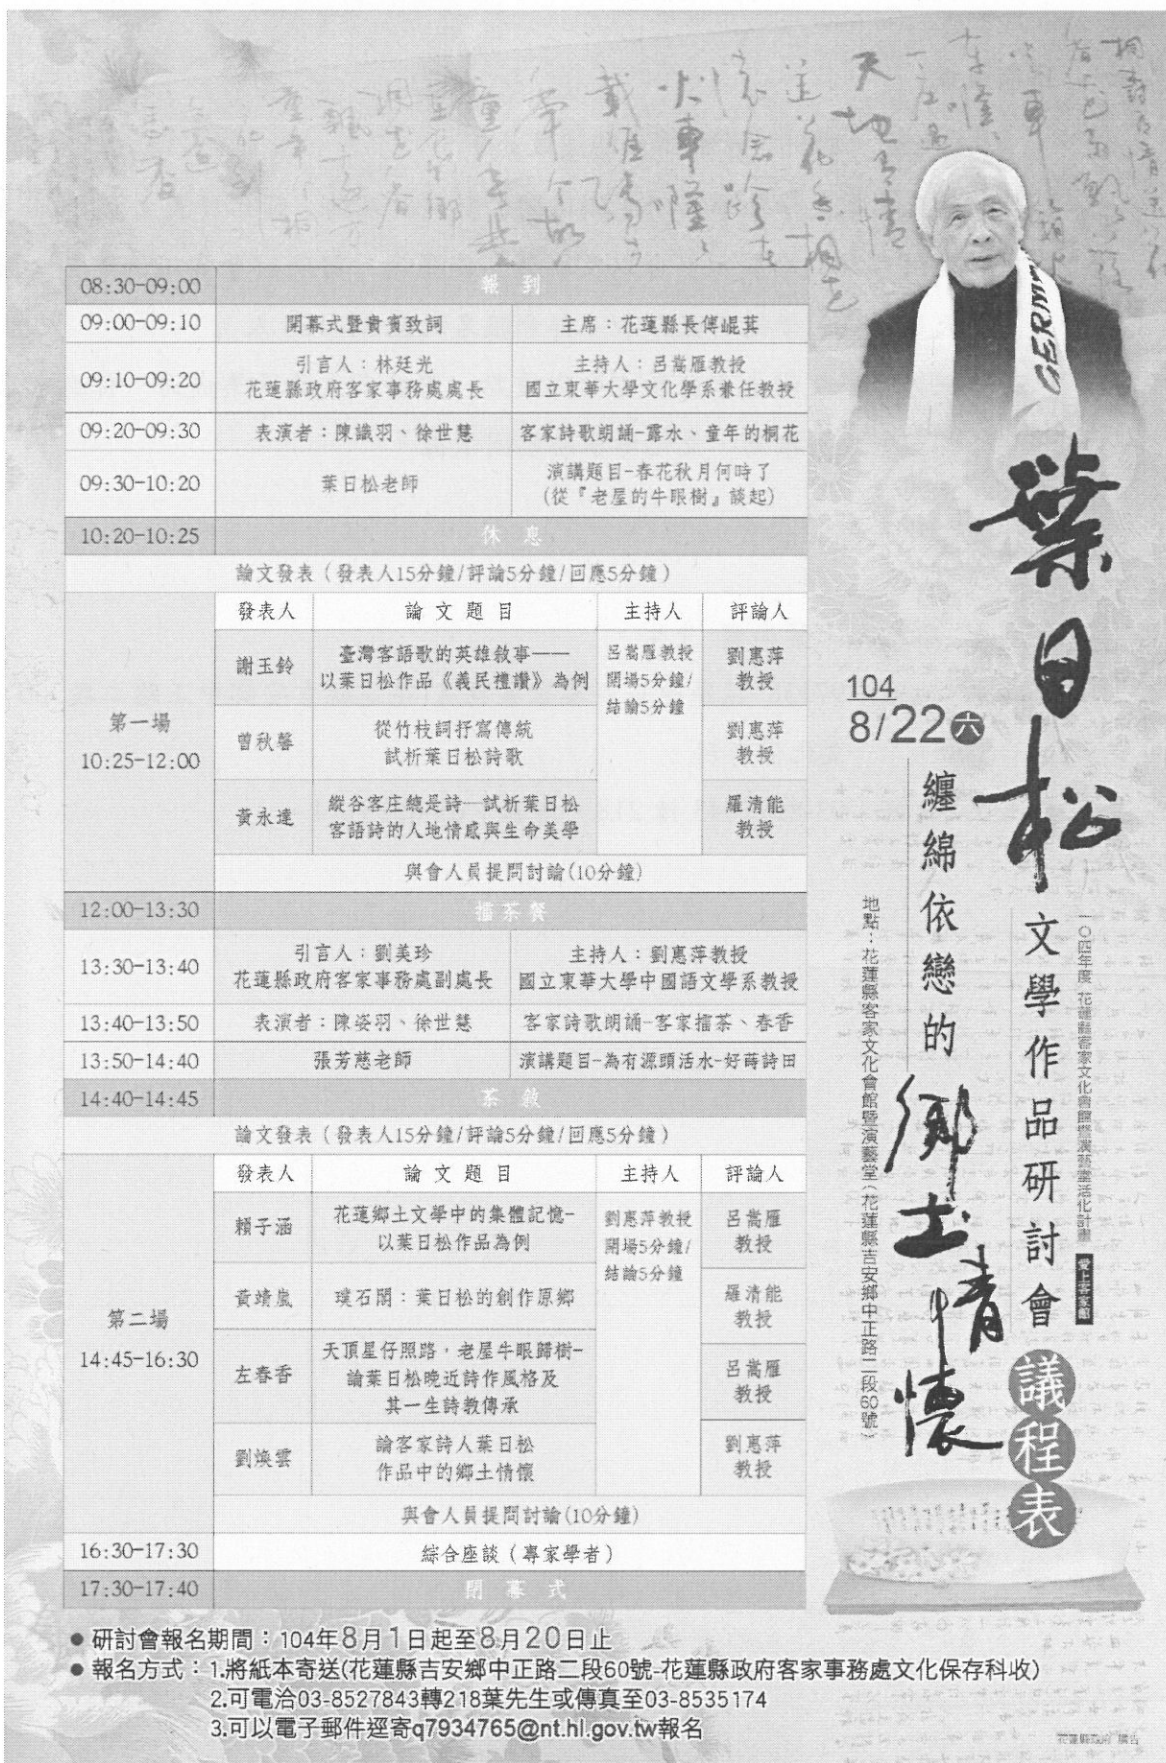 08:30-09:00 報到
09:00-09:10 開幕式暨貴賓致詞 主席：花蓮縣長傅崐萁
09:10-09:20 引言人：林廷光 主持人：呂嵩雁教授
花蓮縣政府客家事務處處長 國立東華大學文化學系兼任教授
09:20-09:30 表演者：陳識羽、徐世慧 客家詩歌朗誦-露水、童年的桐花
09:30-10:20 葉日松老師 演講題目-春花秋月何時了
(從『老屋的牛眼樹』談起)
10:20-10:25 休息
論文發表（發表人15分鐘/評論5分鐘/回應5分鐘）
第一場
10:25-12:00
發表人 論文題目 主持人 評論人
謝玉鈴 臺灣客語歌的英雄敘事——
以葉日松作品《義民禮讚》為例
呂嵩雁教授
開場5分鐘/
結論5分鐘
劉惠萍
教授
曾秋馨 從竹枝詞抒寫傳統
試析葉日松詩歌
劉惠萍
教授
黃永達 縱谷客庄總是詩—試析葉日松
客語詩的人地情感與生命美學
羅清能
教授
與會人員提問討論(10分鐘)
12:00-13:30 擂茶餐
13:30-13:40 引言人：劉美珍 主持人：劉惠萍教授
花蓮縣政府客家事務處副處長 國立東華大學中國語文學系教授
13:40-13:50 表演者：陳姿羽、徐世慧 客家詩歌朗誦-客家擂茶、春香
13:50-14:40 張芳慈老師 演講題目-為有源頭活水-好蒔詩田
14:40-14:45 茶敘
論文發表（發表人15分鐘/評論5分鐘/回應5分鐘）
第二場
14:45-16:30
發表人 論文題目 主持人 評論人
賴子涵 花蓮鄉土文學中的集體記憶-
以葉日松作品為例
劉惠萍教授
開場5分鐘/
結論5分鐘
呂嵩雁
教授
黃靖嵐 璞石閣：葉日松的創作原鄉
羅清能
教授
左春香 天頂星仔照路，老屋牛眼歸樹-
論葉日松晚近詩作風格及
其一生詩教傳承
呂嵩雁
教授
劉煥雲 論客家詩人葉日松
作品中的鄉土情懷
劉惠萍
教授
與會人員提問討論(10分鐘)
16:30-17:30 綜合座談（專家學者）
17:30-17:40 閉幕式
葉日松文學作品研討會議程表
一〇四年度 花蓮縣客家文化會館暨演藝堂活化計畫 愛上客家館
104
8/22 六
纏綿依戀的鄉土情懷
地點：花蓮縣客家文化會館暨演藝堂（花蓮縣吉安鄉中正路二段60號）
● 研討會報名期間：104年8月1日起至8月20日止
● 報名方式：1.將紙本寄送(花蓮縣吉安鄉中正路二段60號-花蓮縣政府客家事務處文化保存科收)
2.可電洽03-8527843轉218葉先生或傳真至03-8535174
3.可以電子郵件逕寄q7934765@nt.hl.gov.tw報名
花蓮縣政府 廣告